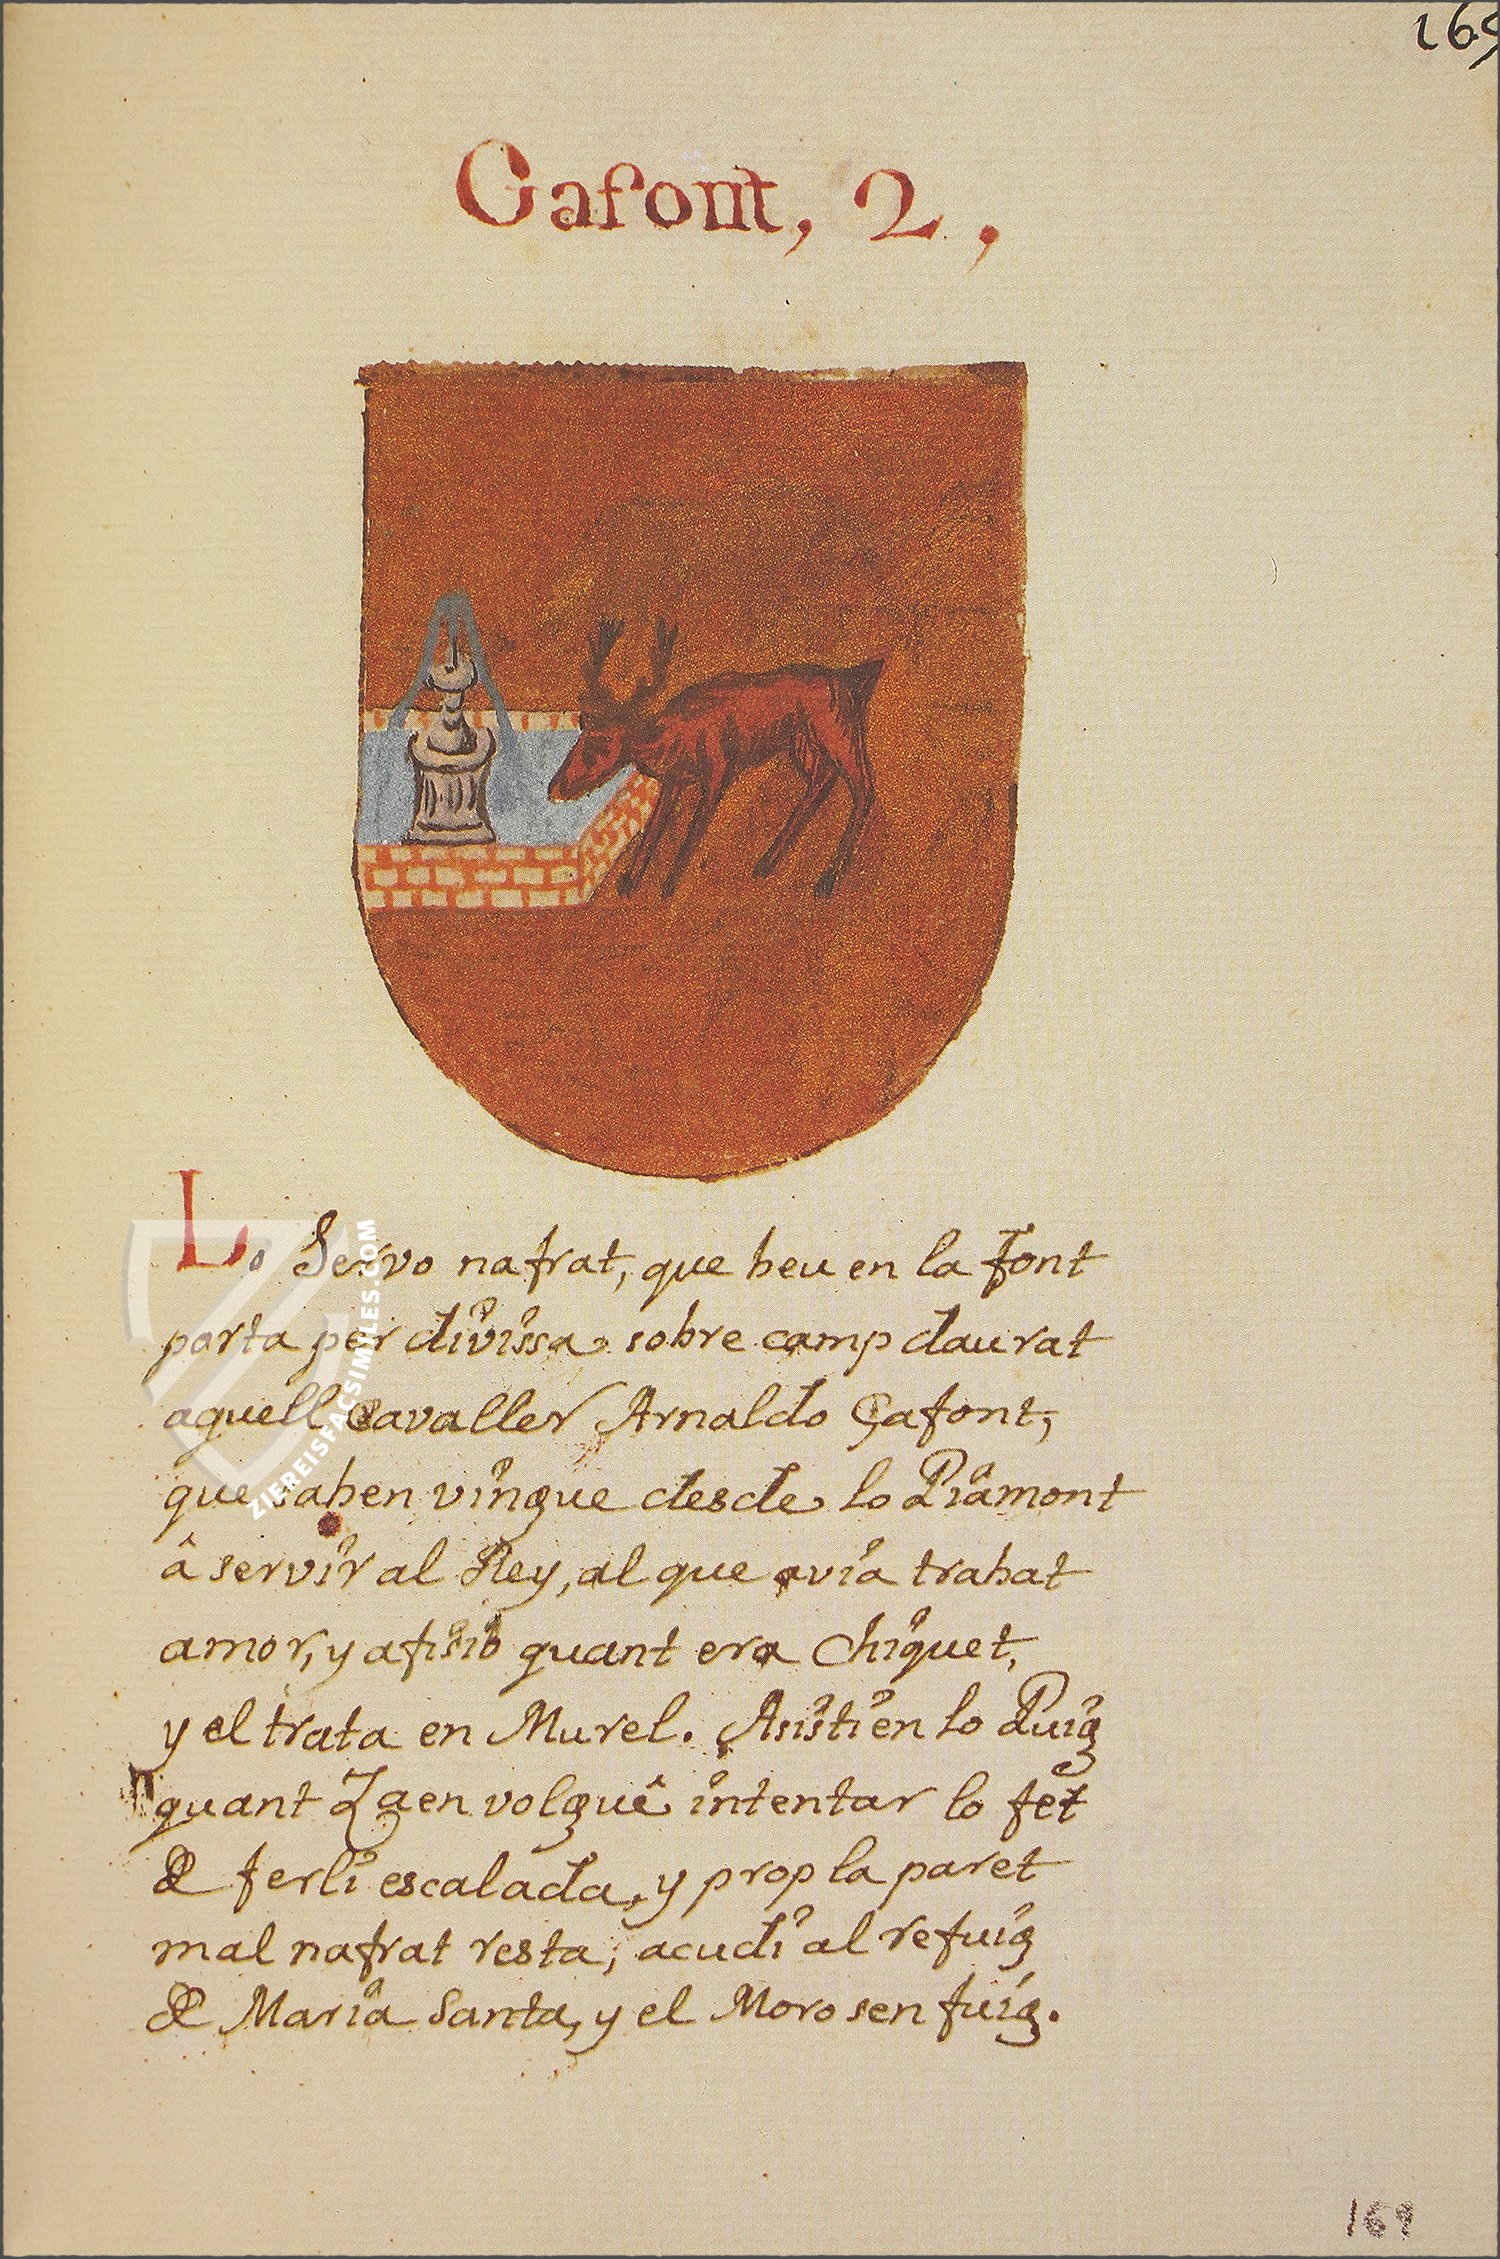 165
Gafont, 2,
Lo Servo nafrat, que beu en la font
porta per divissa sobre camp daurat
aquell Cavaller Arnaldo Çafont,
que saben vingue desde lo Piamont
â servir al Rey, al que avia trabat
amor, y afisio quant era Chiquet,
y el trata en Murel. Asisti en lo Puig
quant Zaen volguê intentar lo fet
de ferli escalada, y prop la paret
mal nafrat resta; acudi al refuig
de Maria Santa, y el Moro sen fuig.
ZIEREISFACSIMILES.COM
169